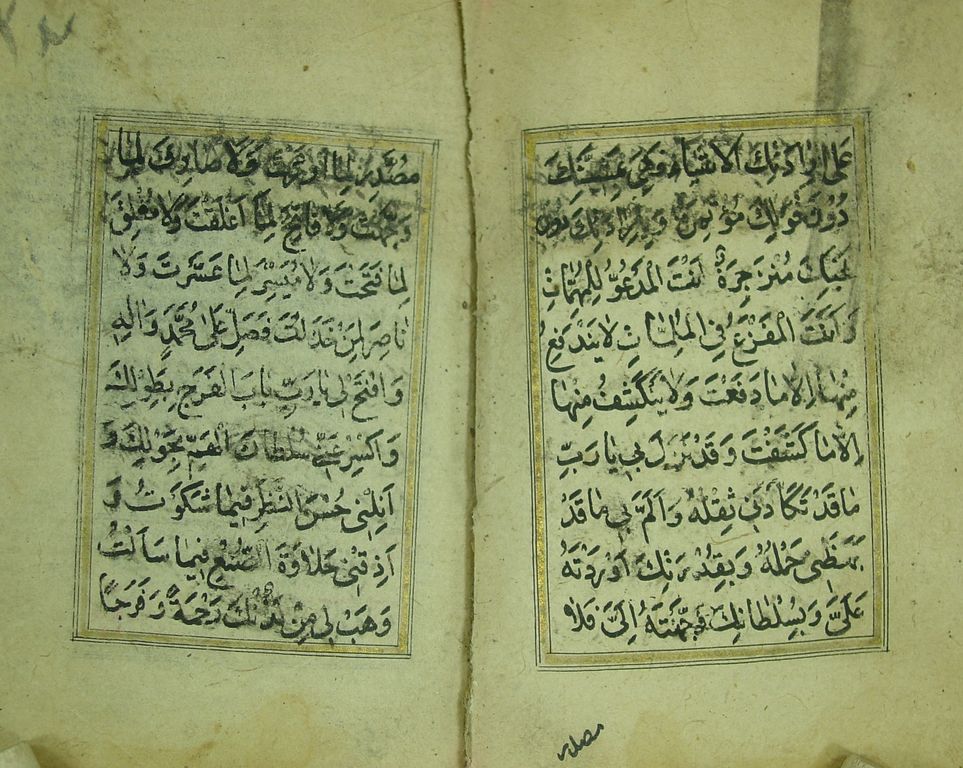 عَلى اِرادَتِكَ الْاَشْياءُ فَهِيَ بِمَشِيَّتِكَ
دُونَ قَوْلِكَ مُؤْتَمِرَةٌ وَبِاِرادَتِكَ دُونَ
نَهْيِكَ مُنْزَجِرَةٌ اَنْتَ الْمَدْعُوُّ لِلْمُهِمّاتِ
وَاَنْتَ الْمَفْزَعُ فِي الْمُلِمّاتِ لا يَنْدَفِعُ
مِنْها اِلّا ما دَفَعْتَ وَلا يَنْكَشِفُ مِنْها
اِلّا ما كَشَفْتَ وَقَدْ نَزَلَ بي يا رَبِّ
ما قَدْ تَكَاَّدَني ثِقْلُهُ وَاَلَمَّ بي ما قَدْ
بَهَظَني حَمْلُهُ وَبِقُدْرَتِكَ اَوْرَدْتَهُ
عَلَيَّ وَبِسُلْطانِكَ وَجَّهْتَهُ اِلَيَّ فَلا
مصدر
مُصْدِرَ لِما اَوْرَدْتَ وَلا صارِفَ لِما
وَجَّهْتَ وَلا فاتِحَ لِما اَغْلَقْتَ وَلا مُغْلِقَ
لِما فَتَحْتَ وَلا مُيَسِّرَ لِما عَسَّرْتَ وَلا
ناصِرَ لِمَنْ خَذَلْتَ فَصَلِّ عَلى مُحَمَّدٍ وَالِهِ
وَافْتَحْ لي يا رَبِّ بابَ الْفَرَجِ بِطَوْلِكَ
وَاكْسِرْ عَنّي سُلْطانَ الْهَمِّ بِحَوْلِكَ وَ
اَنِلْني حُسْنَ النَّظَرِ فيما شَكَوْتُ وَ
اَذِقْني حَلاوَةَ الصُّنْعِ فيما سَاَلْتُ
وَهَبْ لي مِنْ لَدُنْكَ رَحْمَةً وَفَرَجاً